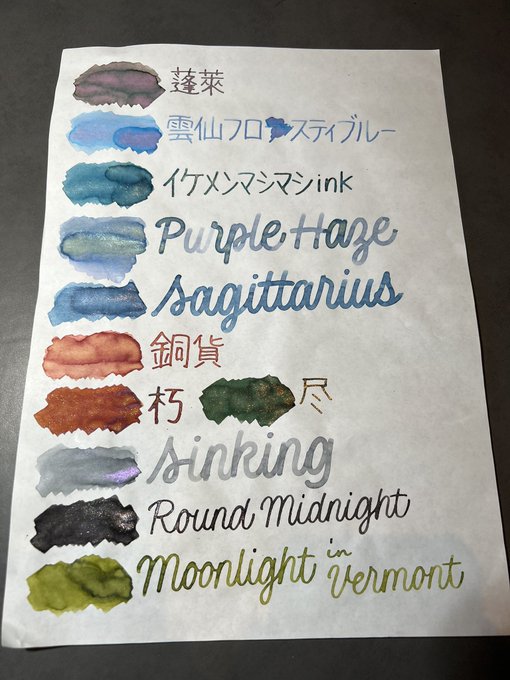 蓬萊
雲仙フロスティブルー
イケメンマシマシink
Purple Haze
sagittarius
銅貨
朽 尽
sinking
Round Midnight
Moonlight in Vermont